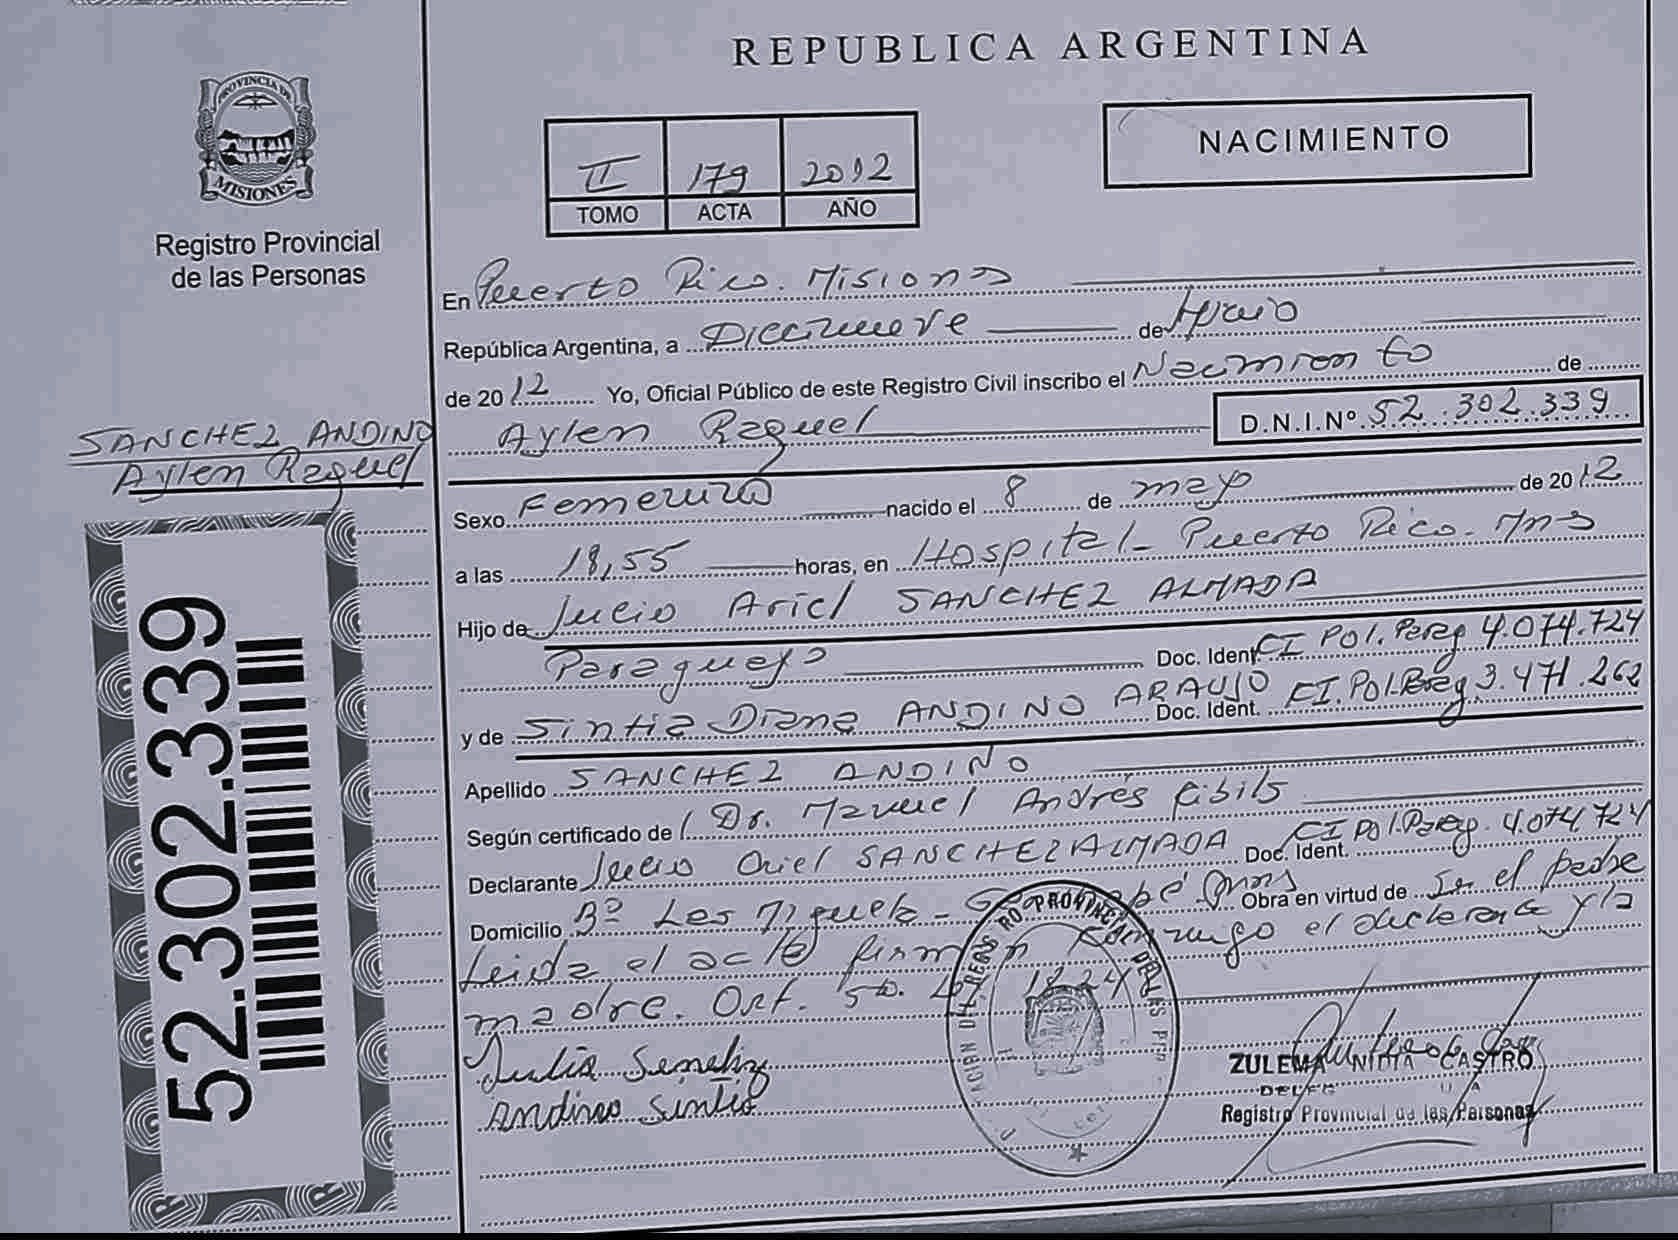 REPUBLICA ARGENTINA
PROVINCIA DE
MISIONES
Registro Provincial
de las Personas
II 179 2012
TOMO ACTA AÑO
NACIMIENTO
En Puerto Rico. Misiones
República Argentina, a Diecinueve de
de 2012 Yo, Oficial Público de este Registro Civil inscribo el Nacimiento de
Aylen Raquel D.N.I.Nº 52.302.339
SANCHEZ ANDINO
Aylen Raquel
Sexo Femenino nacido el 8 de mayo de 2012
a las 18,55 horas, en Hospital - Puerto Rico. Mns
Hijo de Ariel SANCHEZ ALMADA
Paraguayo Doc. Ident. CI Pol. Parag 4.074.724
y de Sintia Diana ANDINO ARAUJO Doc. Ident. CI. Pol. Parag 3.471.262
Apellido SANCHEZ ANDINO
Según certificado de Dr. Manuel Andrés
Declarante SANCHEZ ALMADA Doc. Ident. CI Pol. Parag. 4.074.724
Domicilio Bº Obra en virtud de Ser el padre
Leida el acta conmigo el declarante y la
madre.
52.302.339
Andino Sintia
ZULEMA NIDIA CASTRO
Registro Provincial de las Personas